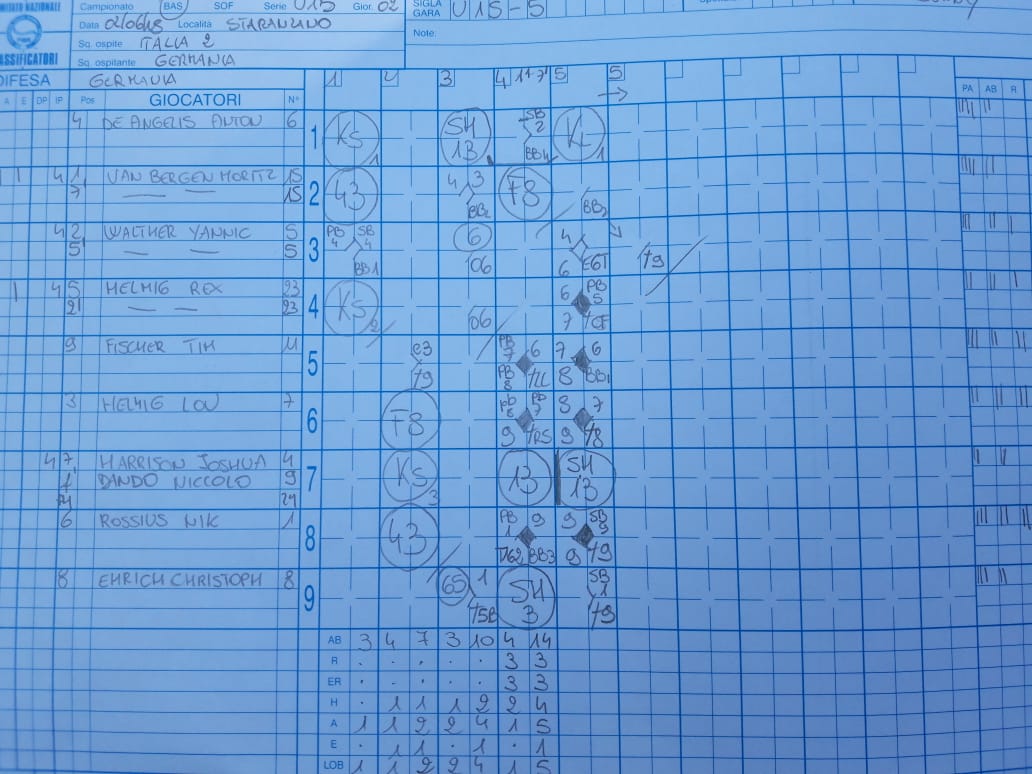 MITATO NAZIONALE
ASSIFICATORI
Campionato BAS SOF Serie U15 Gior. 02
Data 02/06/18 Località STARANZANO
Sq. ospite ITALIA 2
Sq. ospitante GERMANIA
SIGLA GARA U15-5
Note:
DIFESA GERMANIA 1 2 3 4 1+7 5 5
A E DP IP Pos GIOCATORI N° PA AB R
4 DE ANGELIS ANTON 6 1 KS 1 SH 13 SB 2 BB4 KL 1
4 1 VAN BERGEN MORITZ 15 2 43 4 3 BB2 F8 BB2
7 — — 15
4 2 WALTHER YANNIC 5 3 PB 4 SB 4 BB1 6 06 4 6 E6T T9
5 — — 5
4 5 HELMIG REX 23 4 KS 2 06 6 PB 5 7 TCF
2 — — 23
9 FISCHER TIM 11 5 e3 T9 PB 7 6 PB 8 TLC 7 6 8 BB1
3 HELMIG LOU 7 6 F8 pb 8 PB 7 9 TRS 8 7 9 T8
4 7 HARRISON JOSHUA 4 7 KS 3 13 SH 13
1 DANDO NICCOLO 9
24
6 ROSSIUS NIK 1 8 43 PB 1 9 BB3 9 SB 9 9 T9
8 EHRICH CHRISTOPH 8 9 65 1 T5B SH 3 SB 1 T9
AB 3 4 7 3 10 4 14
R . . . . . 3 3
ER . . . . . 3 3
H . 1 1 1 2 2 4
A 1 1 2 2 4 1 5
E . 1 1 . 1 . 1
LOB 1 1 2 2 4 1 5